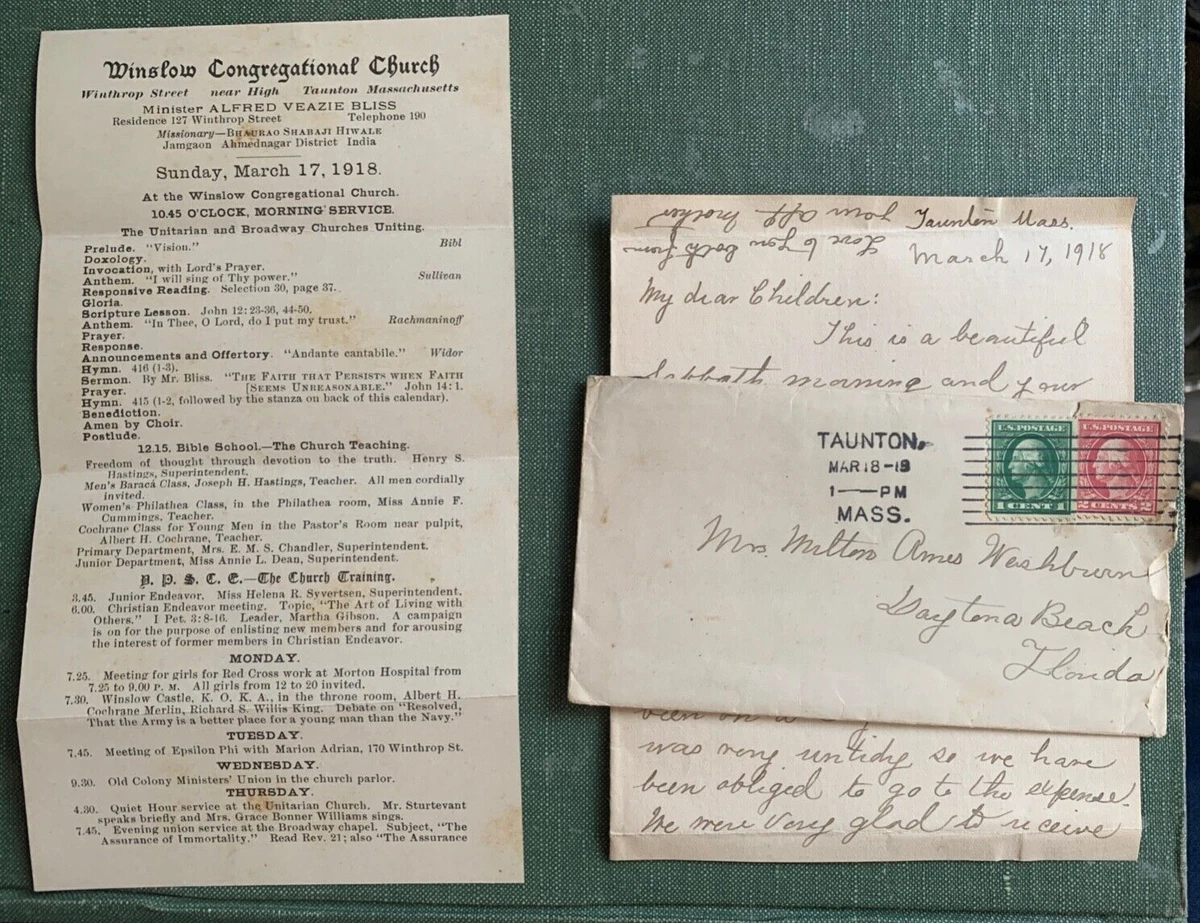 Winslow Congregational Church
Winthrop Street near High Taunton Massachusetts
Minister ALFRED VEAZIE BLISS
Residence 127 Winthrop Street Telephone 190
Missionary—BHAURAO SHABAJI HIWALE
Jamgaon Ahmednagar District India
Sunday, March 17, 1918.
At the Winslow Congregational Church.
10.45 O'CLOCK, MORNING SERVICE.
The Unitarian and Broadway Churches Uniting.
Prelude. "Vision." Bibl
Doxology.
Invocation, with Lord's Prayer.
Anthem. "I will sing of Thy power." Sullivan
Responsive Reading. Selection 30, page 37.
Gloria.
Scripture Lesson. John 12: 23-36, 44-50.
Anthem. "In Thee, O Lord, do I put my trust." Rachmaninoff
Prayer.
Response.
Announcements and Offertory. "Andante cantabile." Widor
Hymn. 416 (1-3).
Sermon. By Mr. Bliss. "THE FAITH THAT PERSISTS WHEN FAITH
Prayer. [SEEMS UNREASONABLE." John 14: 1.
Hymn. 415 (1-2, followed by the stanza on back of this calendar).
Benediction.
Amen by Choir.
Postlude.
12.15. Bible School.—The Church Teaching.
Freedom of thought through devotion to the truth. Henry S.
Hastings, Superintendent.
Men's Baraca Class, Joseph H. Hastings, Teacher. All men cordially
invited.
Women's Philathea Class, in the Philathea room, Miss Annie F.
Cummings, Teacher.
Cochrane Class for Young Men in the Pastor's Room near pulpit,
Albert H. Cochrane, Teacher.
Primary Department, Mrs. E. M. S. Chandler, Superintendent.
Junior Department, Miss Annie L. Dean, Superintendent.
Y. P. S. C. E.—The Church Training.
3.45. Junior Endeavor. Miss Helena R. Syvertsen, Superintendent.
6.00. Christian Endeavor meeting. Topic, "The Art of Living with
Others." I Pet. 3: 8-16. Leader, Martha Gibson. A campaign
is on for the purpose of enlisting new members and for arousing
the interest of former members in Christian Endeavor.
MONDAY.
7.25. Meeting for girls for Red Cross work at Morton Hospital from
7.25 to 9.00 P. M. All girls from 12 to 20 invited.
7.30. Winslow Castle, K. O. K. A., in the throne room, Albert H.
Cochrane Merlin, Richard S. Willis King. Debate on "Resolved,
That the Army is a better place for a young man than the Navy."
TUESDAY.
7.45. Meeting of Epsilon Phi with Marion Adrian, 170 Winthrop St.
WEDNESDAY.
9.30. Old Colony Ministers' Union in the church parlor.
THURSDAY.
4.30. Quiet Hour service at the Unitarian Church. Mr. Sturtevant
speaks briefly and Mrs. Grace Bonner Williams sings.
7.45. Evening union service at the Broadway chapel. Subject, "The
Assurance of Immortality." Read Rev. 21; also "The Assurance
Love to you both from
your aff. Mother
Taunton Mass.
March 17, 1918
My dear Children:
This is a beautiful
Sabbath morning and your
TAUNTON,
MAR 18-18
1—PM
MASS.
U.S. POSTAGE
1 CENT 1
U.S. POSTAGE
2 CENTS 2
Mrs. Milton Ames Washburn
Daytona Beach
Florida
been on a
was very untidy so we have
been obliged to go to the expense.
We were very glad to receive